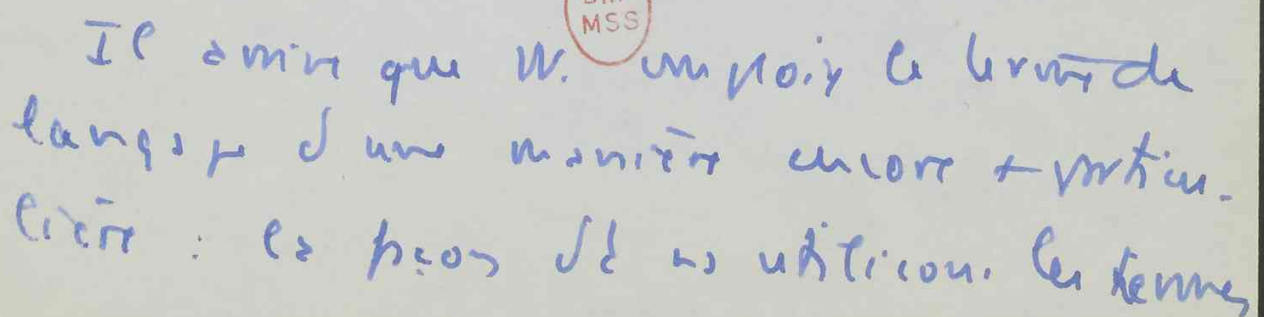 MSS
Il arrive que W. emploie le terme de
langage d'une manière encore + particu-
lière : la façon dt ns utilisons les termes